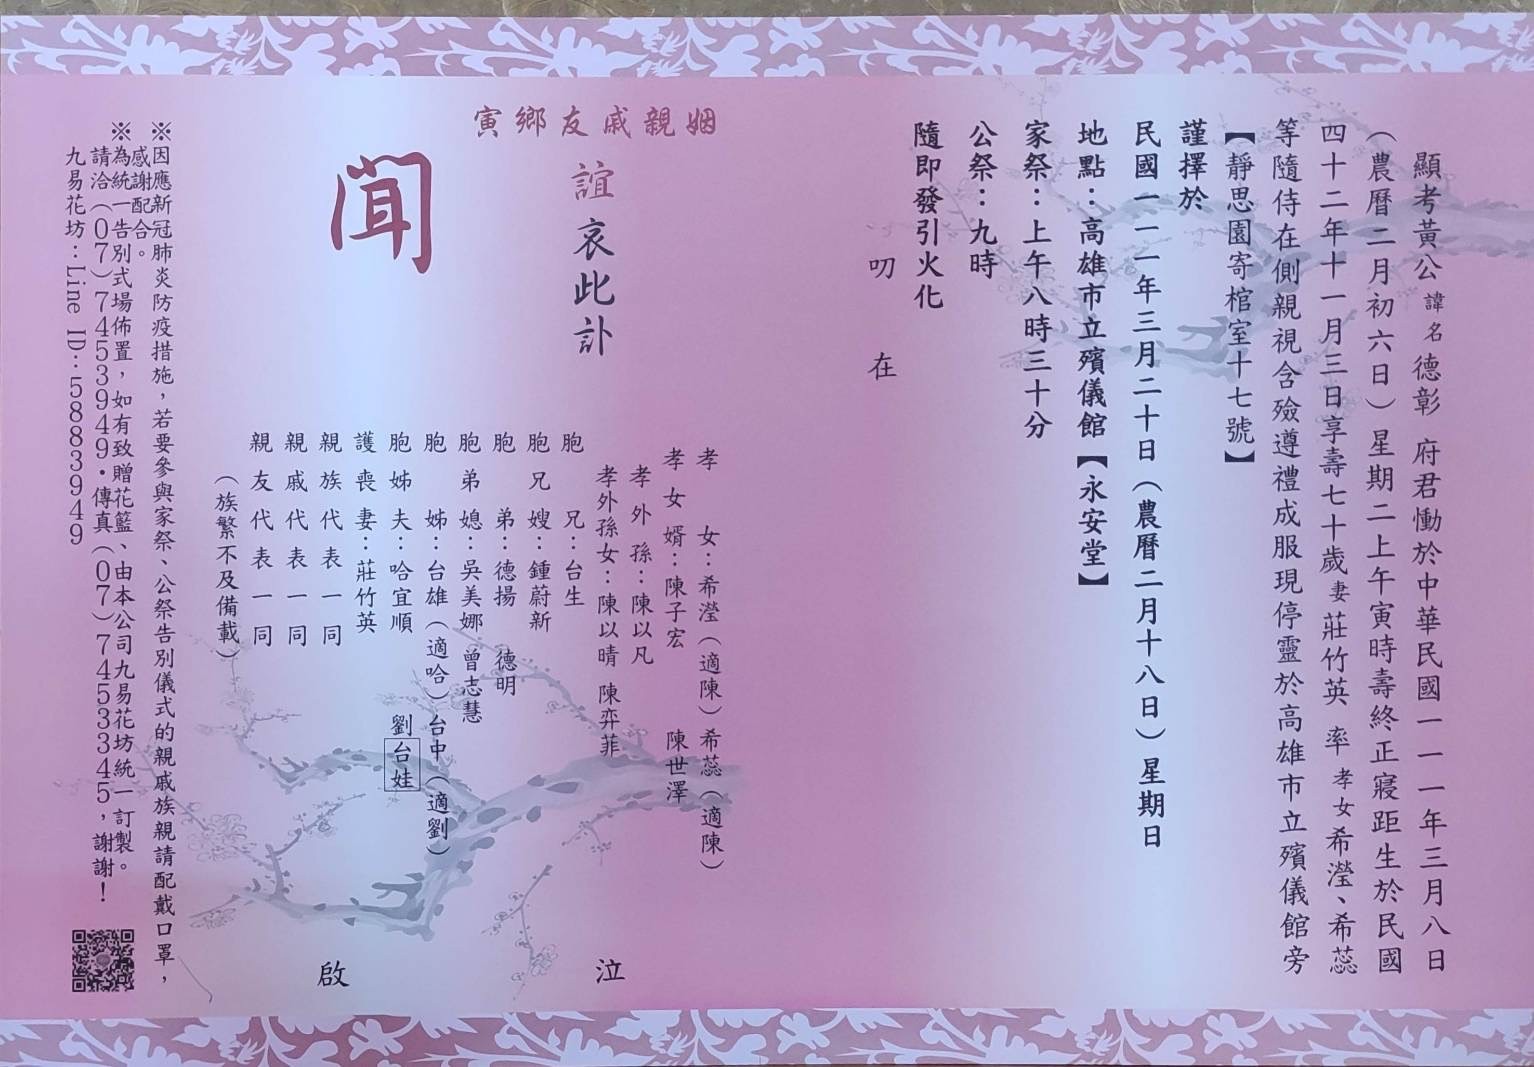 顯考黃公諱名德彰 府君慟於中華民國一一一年三月八日
(農曆二月初六日)星期二上午寅時壽終正寢距生於民國
四十二年十一月三日享壽七十歲妻莊竹英 率 孝女希瀅、希蕊
等隨侍在側親視含殮遵禮成服現停靈於高雄市立殯儀館旁
【靜思園寄棺室十七號】
謹擇於
民國一一一年三月二十日(農曆二月十八日)星期日
地點:高雄市立殯儀館【永安堂】
家祭:上午八時三十分
公祭:九時
隨即發引火化
叨 在
姻親戚友鄉寅
誼哀此訃
聞
孝女:希瀅(適陳)希蕊(適陳)
孝女婿:陳子宏 陳世澤
孝外孫:陳以凡
孝外孫女:陳以晴 陳弈菲
胞兄:台生
胞兄嫂:鍾蔚新
胞弟:德揚 德明
胞弟媳:吳美娜 曾志慧
胞姊:台雄(適哈)台中(適劉)
胞姊夫:哈宜順 劉台娃
護喪妻:莊竹英
親族代表一同
親戚代表一同
親友代表一同
(族繁不及備載)
泣
啟
※因應新冠肺炎防疫措施,若要參與家祭、公祭告別儀式的親戚族親請配戴口罩,
感謝配合。
※為統一告別式場佈置,如有致贈花籃、由本公司九易花坊統一訂製。
請洽(07)7453949•傳真(07)7453345,謝謝!
九易花坊:Line ID:5883949